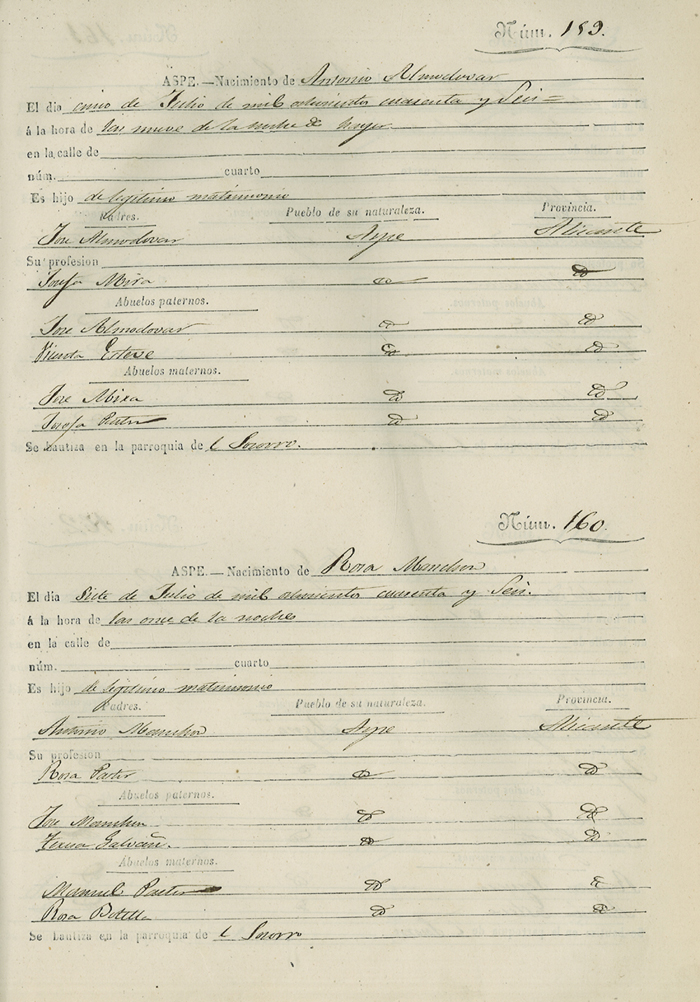 Núm. 159.
ASPE.—Nacimiento de Antonio Almodovar
El dia cinco de Julio de mil ochocientos cuarenta y Seis=
á la hora de las nueve de la noche de
en la calle de
núm. cuarto
Es hijo de legitimo matrimonio
Padres. Pueblo de su naturaleza. Provincia.
Jose Almodovar Aspe Alicante
Su profesion
Josefa Mira id id
Abuelos paternos.
Jose Almodovar id id
Vicenta Esteve id id
Abuelos maternos.
Jose Mira id id
Josefa Pastor id id
Se bautiza en la parroquia de l Socorro.
Núm. 160.
ASPE.—Nacimiento de Rosa Manchon
El dia Siete de Julio de mil ochocientos cuarenta y Seis.
á la hora de las once de la noche
en la calle de
núm. cuarto
Es hijo de legitimo matrimonio
Padres. Pueblo de su naturaleza. Provincia.
Antonio Manchon Aspe Alicante
Su profesion
Rosa Pastor id id
Abuelos paternos.
Jose Manchon id id
Teresa Galvañ. id id
Abuelos maternos.
Manuel Pastor id id
Rosa Botella id id
Se bautiza en la parroquia de l Socorro